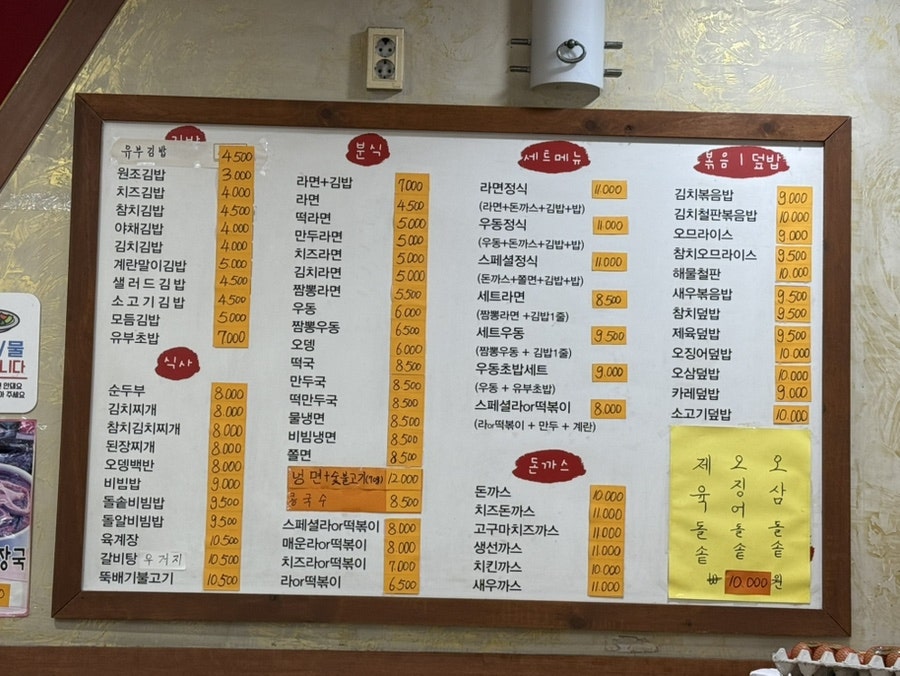 유부김밥 4.500
원조김밥 3.000
치즈김밥 4.000
참치김밥 4.500
야채김밥 4.000
김치김밥 4.000
계란말이김밥 5.000
샐러드김밥 4.500
소고기김밥 4.500
모듬김밥 5.000
유부초밥 7.000
식사
순두부 8.000
김치찌개 8.000
참치김치찌개 8.000
된장찌개 8.000
오뎅백반 8.000
비빔밥 9.000
돌솥비빔밥 9.500
돌알비빔밥 9.500
육계장 10.500
갈비탕 우거지 10.500
뚝배기불고기 10.500
분식
라면+김밥 7.000
라면 4.500
떡라면 5.000
만두라면 5.000
치즈라면 5.000
김치라면 5.000
짬뽕라면 5.500
우동 6.000
짬뽕우동 6.500
오뎅 6.000
떡국 8.500
만두국 8.500
떡만두국 8.500
물냉면 8.500
비빔냉면 8.500
쫄면 8.500
냉면+숯불고기 12.000
콩국수 8.500
스페셜라or떡볶이 8.000
매운라or떡볶이 8.000
치즈라or떡볶이 7.000
라or떡볶이 6.500
세트메뉴
라면정식 11.000
(라면+돈까스+김밥+밥)
우동정식 11.000
(우동+돈까스+김밥+밥)
스페셜정식 11.000
(돈까스+쫄면+김밥+밥)
세트라면 8.500
(짬뽕라면 +김밥1줄)
세트우동 9.500
(짬뽕우동 + 김밥1줄)
우동초밥세트 9.000
(우동 + 유부초밥)
스페셜라or떡볶이 8.000
(라or떡볶이 + 만두 + 계란)
돈까스
돈까스 10.000
치즈돈까스 11.000
고구마치즈까스 11.000
생선까스 11.000
치킨까스 10.000
새우까스 11.000
볶음ㅣ덮밥
김치볶음밥 9.000
김치철판볶음밥 10.000
오므라이스 9.000
참치오므라이스 9.500
해물철판 10.000
새우볶음밥 9.500
참치덮밥 9.500
제육덮밥 9.500
오징어덮밥 10.000
오삼덮밥 10.000
카레덮밥 9.000
소고기덮밥 10.000
제육돌솥
오징어돌솥
오삼돌솥
₩ 10.000원
물
니다
장국